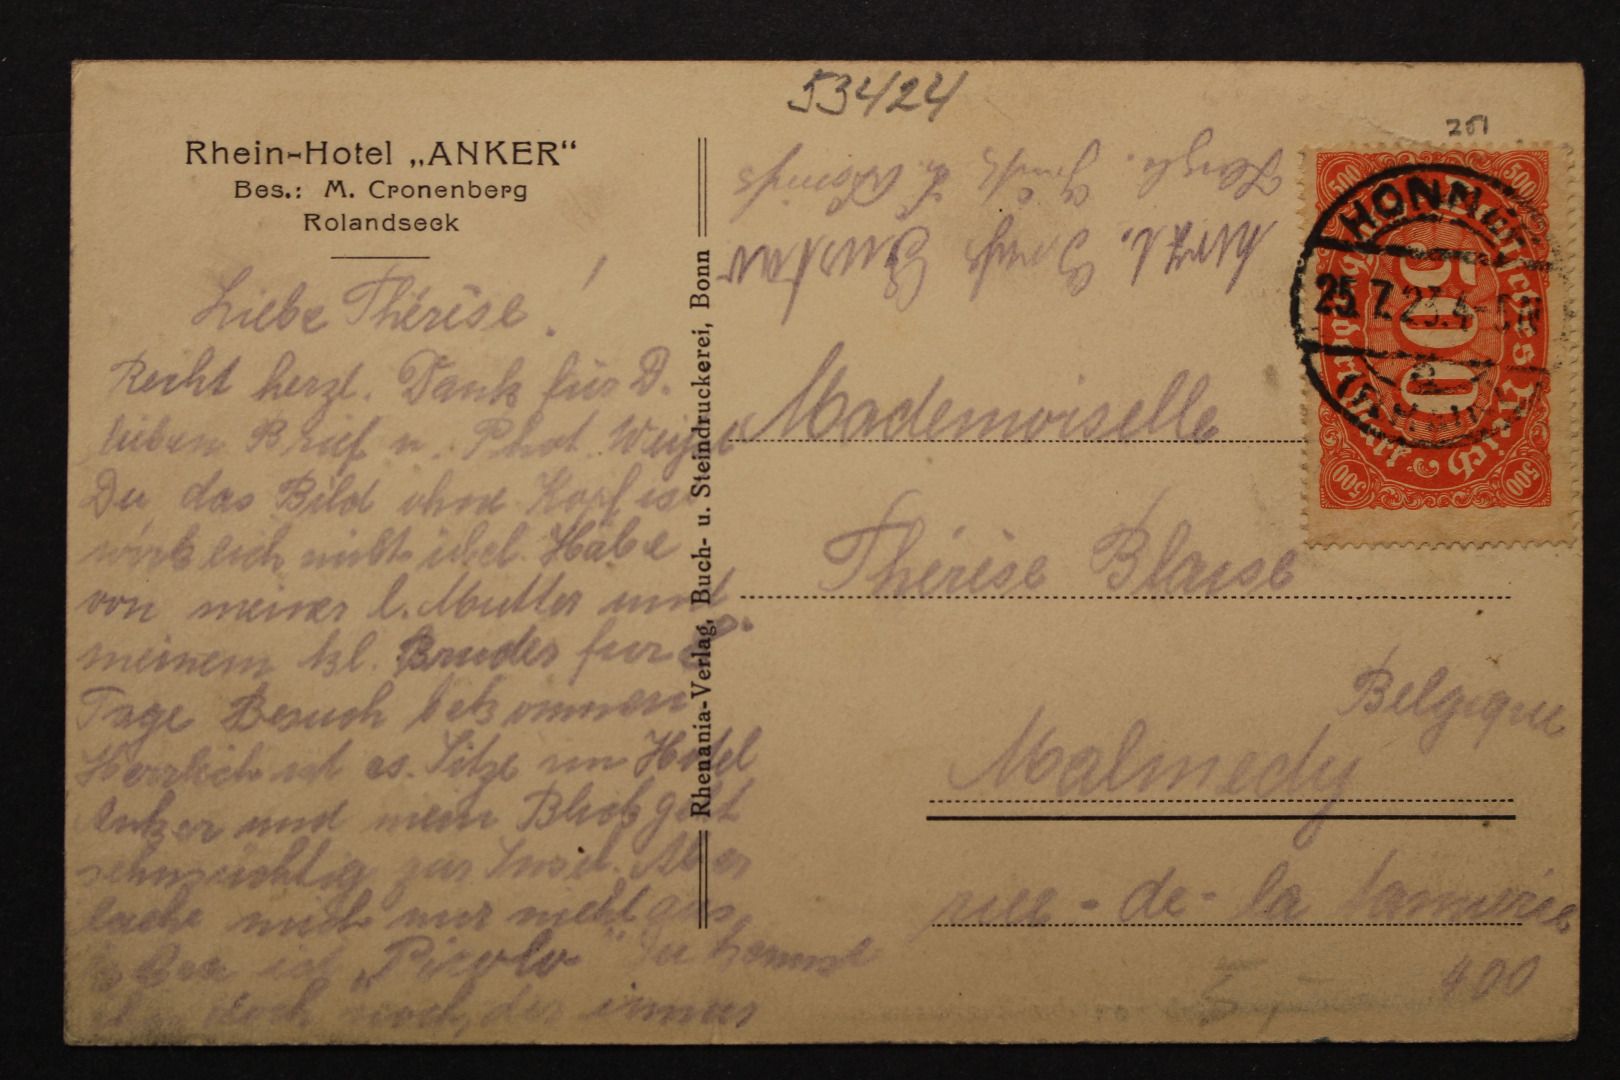 53424
201
Rhein-Hotel „ANKER“
Bes.: M. Cronenberg
Rolandseck
Liebe Thérèse!
Recht herzl. Dank für D.
lieben Brief u. Phot. Weißt
Du das Bild ohne Kopf ist
wirklich nicht übel. Habe
von meiner l. Mutter und
meinem kl. Bruder für 8
Tage Besuch bekommen
Herrlich ist es. Sitze im Hotel
Anker und mein Blick geht
sehnsüchtig zur Insel. Aber
lache mich nur nicht aus,
ich „Picolo“ Du kennst
doch noch, der immer
herzl. Gruß Gustav
Herzl. Gruß
Rhenania-Verlag, Buch- u. Steindruckerei, Bonn
Mademoiselle
Thérèse Blaise
Belgique
Malmedy
rue-de-la tannerie
400
HONNEF
25.7.23.4-5N
(RHEIN)
Deutsches Reich
500
500
500
500
500